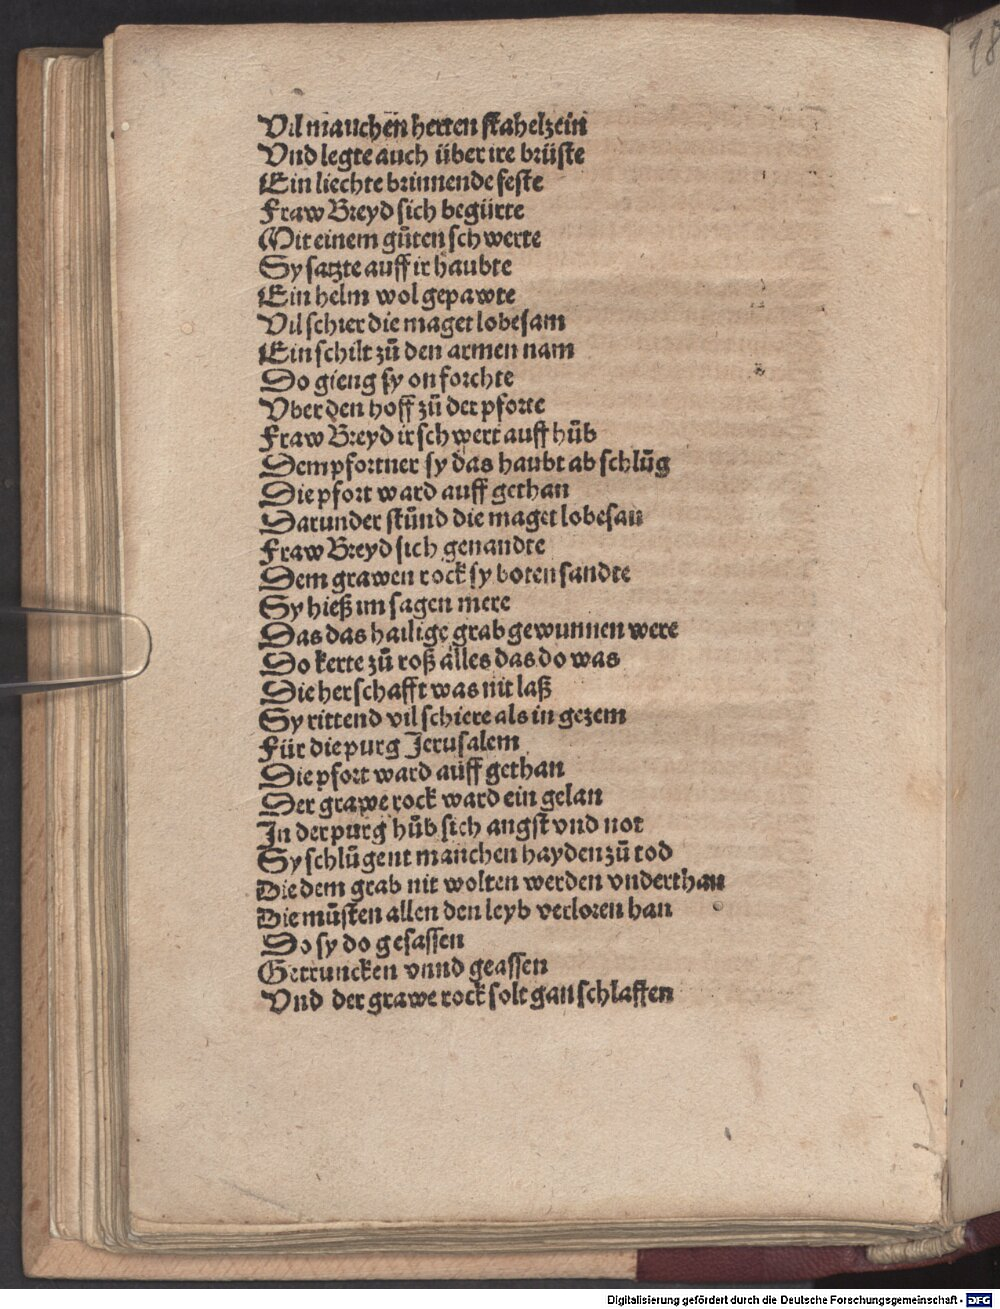 18
Vil manchen herten stahelzein
Vnd legte auch über ire brüste
Ein liechte brinnende feste
Fraw Breyd sich begürte
Mit einem gůten schwerte
Sy satzte auff ir haubte
Ein helm wol gepawte
Vil schier die maget lobesam
Ein schilt zů den armen nam
Do gieng sy on forchte
Vber den hoff zů der pforte
Fraw Breyd ir schwert auff hůb
Dem pfortner sy das haubt ab schlůg
Die pfort ward auff gethan
Darunder stůnd die maget lobesan
Fraw Breyd sich genandte
Dem grawen rock sy boten sandte
Sy hieß im sagen mere
Das das hailige grab gewunnen were
Do kerte zů roß alles das do was
Die herschafft was nit laß
Sy rittend vil schiere als in gezem
Für die purg Jerusalem
Die pfort ward auff gethan
Der grawe rock ward ein gelan
In der purg hůb sich angst vnd not
Sy schlůgent manchen hayden zů tod
Die dem grab nit wolten werden vnderthan
Die můsten allen den leyb verloren han
Do sy do gesassen
Getruncken vnnd geassen
Vnd der grawe rock solt gan schlaffen
Digitalisierung gefördert durch die Deutsche Forschungsgemeinschaft - DFG